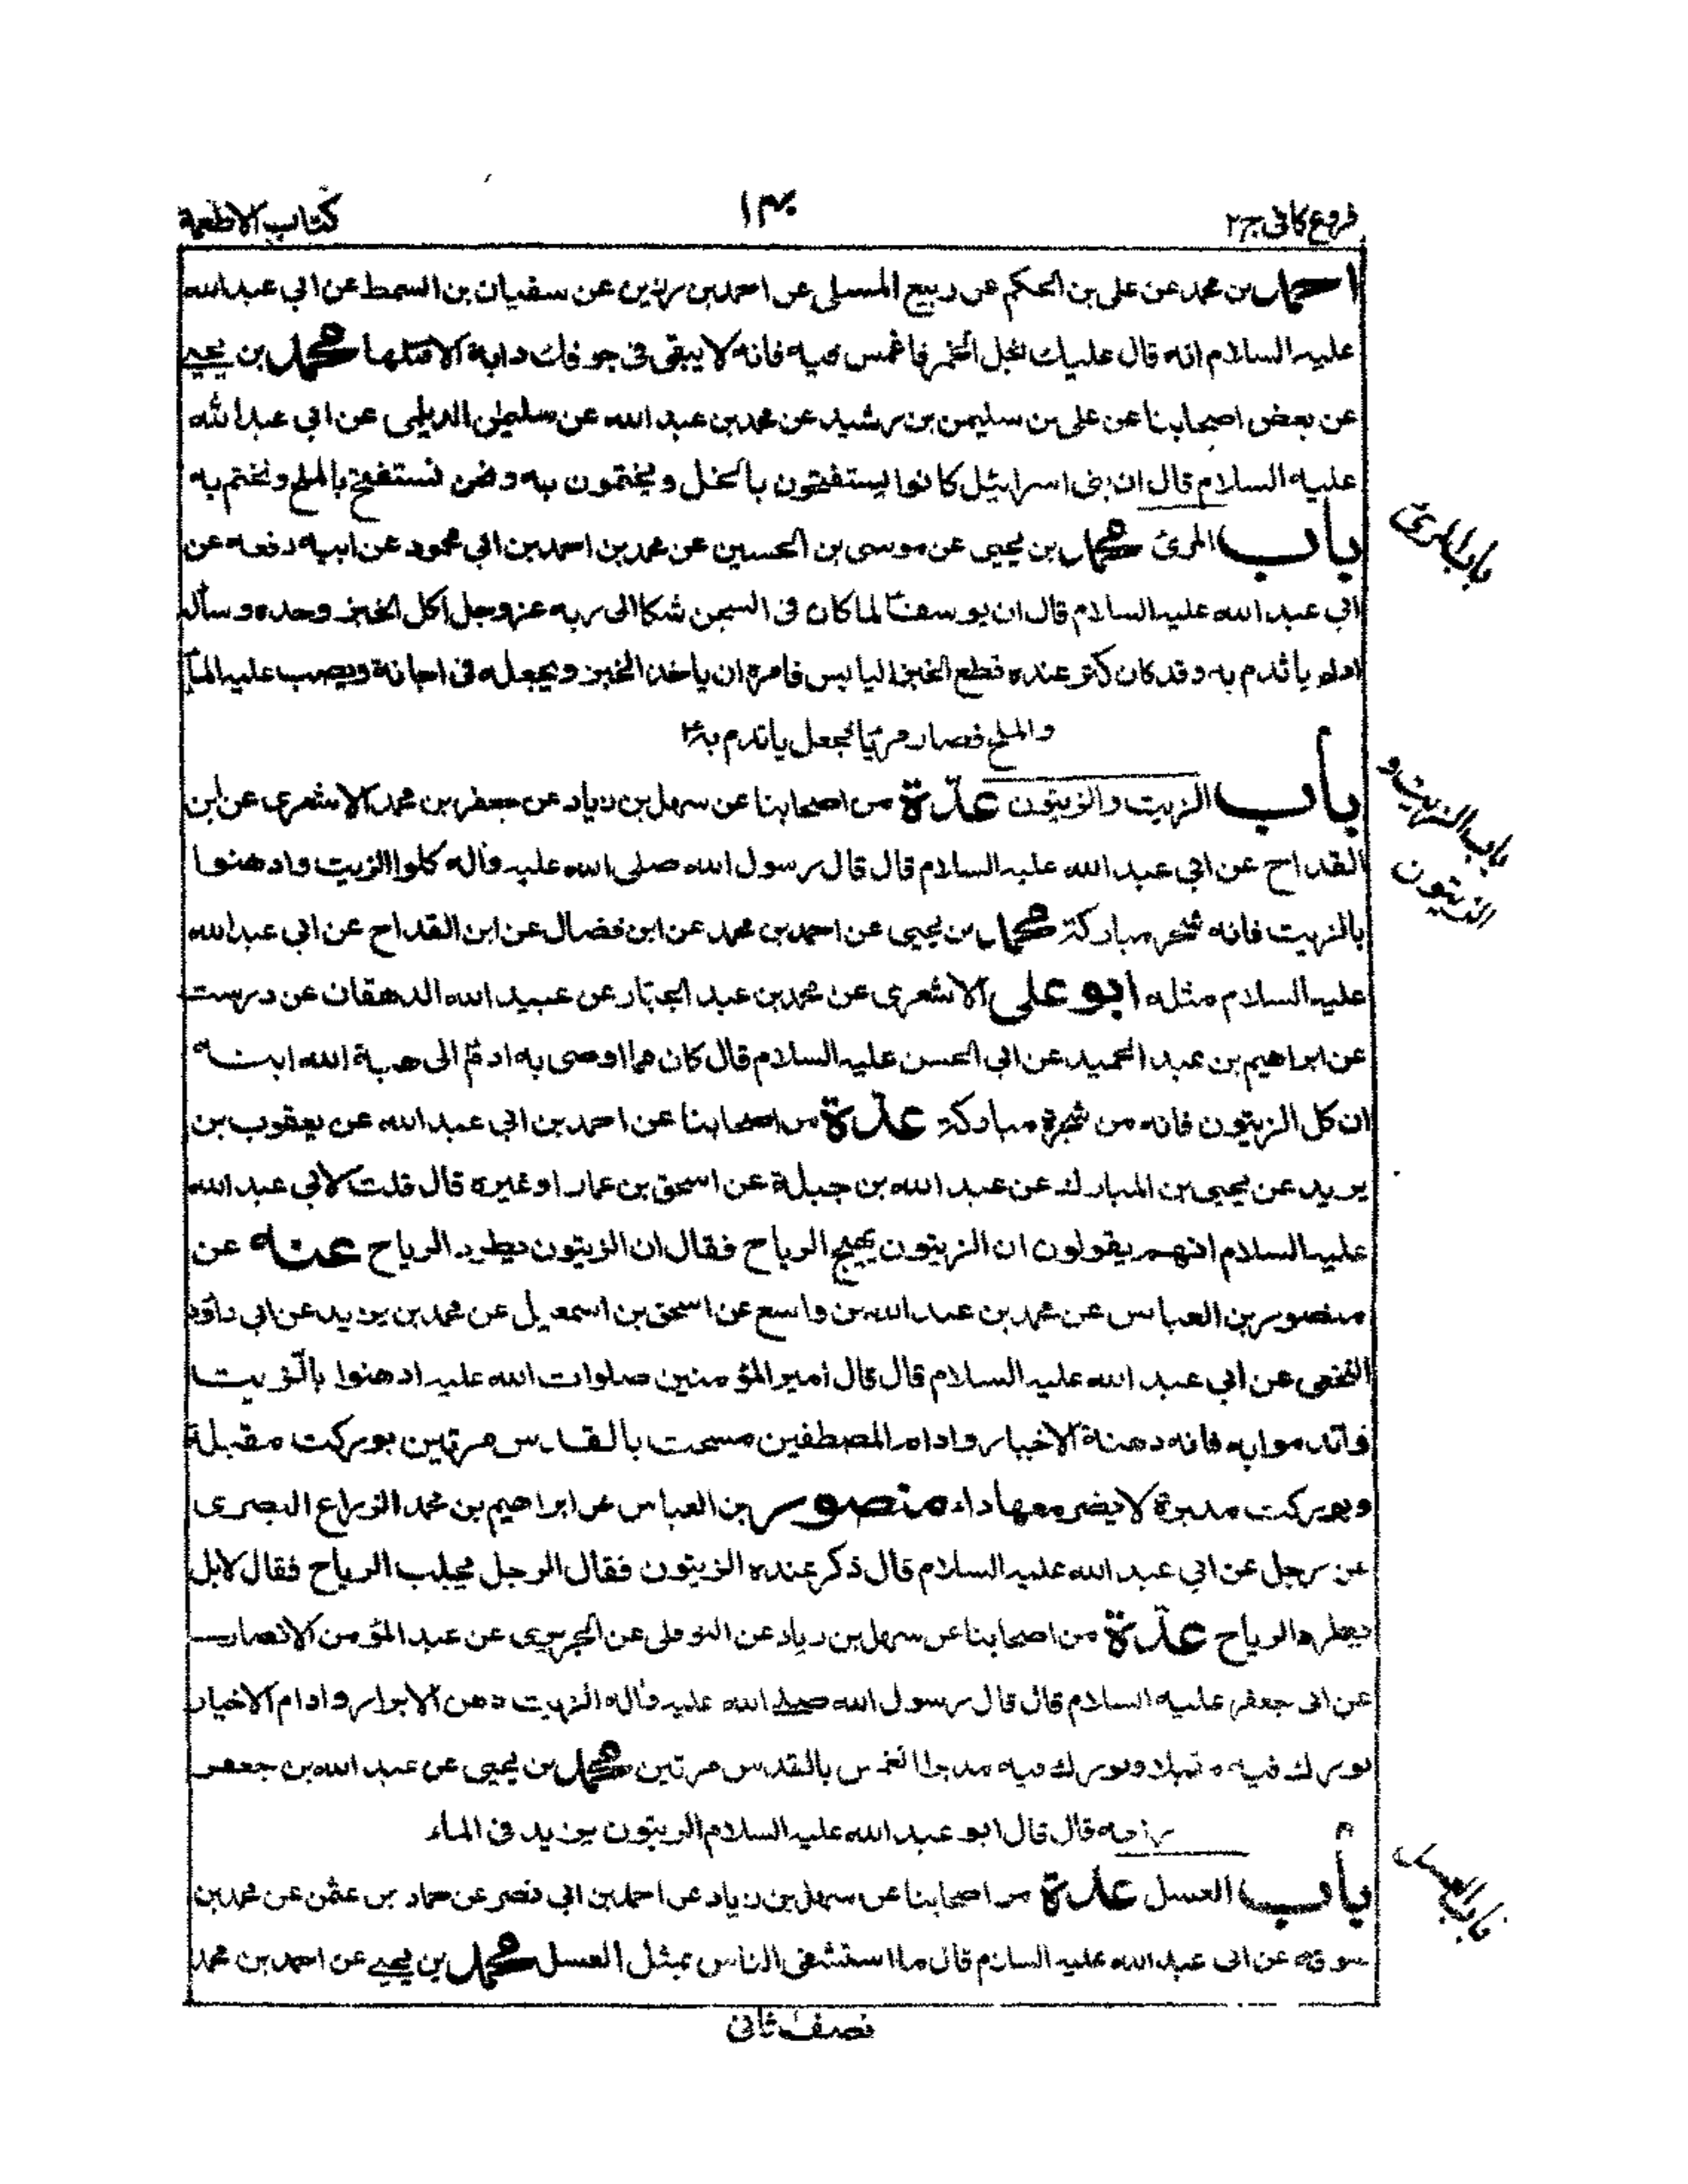 فروع كافى ج٢
كتاب الاطعمة
احمد بن محمد عن على بن الحكم عن ربيع المسلى عن احمد بن رزين عن سفيان بن السمط عن ابي عبد الله
عليه السلام انه قال عليك بخل الخمر فاغمس فيه فانه لا يبقى فى جوفك دابة الا قتلها محمد بن يحيى
عن بعض اصحابنا عن على بن سليمن بن رشيد عن محمد بن عبد الله عن سليمن الديلمى عن ابي عبد الله
عليه السلام قال ان بنى اسرائيل كانوا يستفتحون بالخل و يختمون به و نحن نستفتح بالملح و نختم به
باب المرئ محمد بن يحيى عن موسى بن الحسين عن محمد بن احمد بن ابي محمود عن ابيه رفعه عن
باب المرئ
ابي عبد الله عليه السلام قال ان يوسف لما كان فى السجن شكا الى ربه عز وجل اكل الخبز وحده و سأله
اداما ياتدم به و قد كان كثر عنده قطع الخبز اليابس فامره ان ياخذ الخبز و يجعله فى اجانة و يصب عليه الماء
والملح فصار مريا فجعل ياتدم به
باب الزيت والزيتون عدّة من اصحابنا عن سهل بن زياد عن جعفر بن محمد الاشعرى عن ابن
باب الزيت و
الزيتون
القداح عن ابي عبد الله عليه السلام قال قال رسول الله صلى الله عليه وآله كلوا الزيت وادهنوا
بالزيت فانه شجر مباركة محمد بن يحيى عن احمد بن محمد عن ابن فضال عن ابن القداح عن ابي عبد الله
عليه السلام مثله ابو على الاشعرى عن محمد بن عبد الجبّار عن عبيد الله الدهقان عن درست
عن ابراهيم بن عبد الحميد عن ابي الحسن عليه السلام قال كان مما اوصى به ادم الى هبة الله ابنه
ان كل الزيتون فانه من شجرة مباركة عدّة من اصحابنا عن احمد بن ابي عبد الله عن يعقوب بن
يزيد عن يحيى بن المبارك عن عبد الله بن جبلة عن اسحق بن عمار او غيره قال قلت لابي عبد الله
عليه السلام انهم يقولون ان الزيتون يهيج الرياح فقال ان الزيتون يطرد الرياح عنه عن
منصور بن العباس عن محمد بن عبد الله بن واسع عن اسحق بن اسمعيل عن محمد بن يزيد عن ابي داؤد
النخعى عن ابي عبد الله عليه السلام قال قال امير المؤمنين صلوات الله عليه ادهنوا بالزيت
واتدموا به فانه دهنة الاخيار و ادام المصطفين مسحت بالقدس مرتين بوركت مقبلة
وبوركت مدبرة لا يضر معها داء منصور بن العباس عن ابراهيم بن محمد الزراع البصرى
عن رجل عن ابي عبد الله عليه السلام قال ذكر عنده الزيتون فقال الرجل يجلب الرياح فقال لا بل
يطرد الرياح عدّة من اصحابنا عن سهل بن زياد عن النوفلى عن الجريرى عن عبد المؤمن الانصارى
عن ابى جعفر عليه السلام قال قال رسول الله صلى الله عليه وآله الزيت دهن الابرار و ادام الاخيار
بورك فيه مقبلا وبورك فيه مدبرا انغمس بالقدس مرتين محمد بن يحيى عن عبد الله بن جعفر
رفعه قال قال ابو عبد الله عليه السلام الزيتون يزيد فى الماء
باب العسل عدة من اصحابنا عن سهل بن زياد عن احمد بن ابي نصر عن حماد بن عثمن عن محمد بن
باب العسل
سوقه عن ابى عبد الله عليه السلام قال ما استشفى الناس بمثل العسل محمد بن يحيى عن احمد بن محمد
نصف ثانى